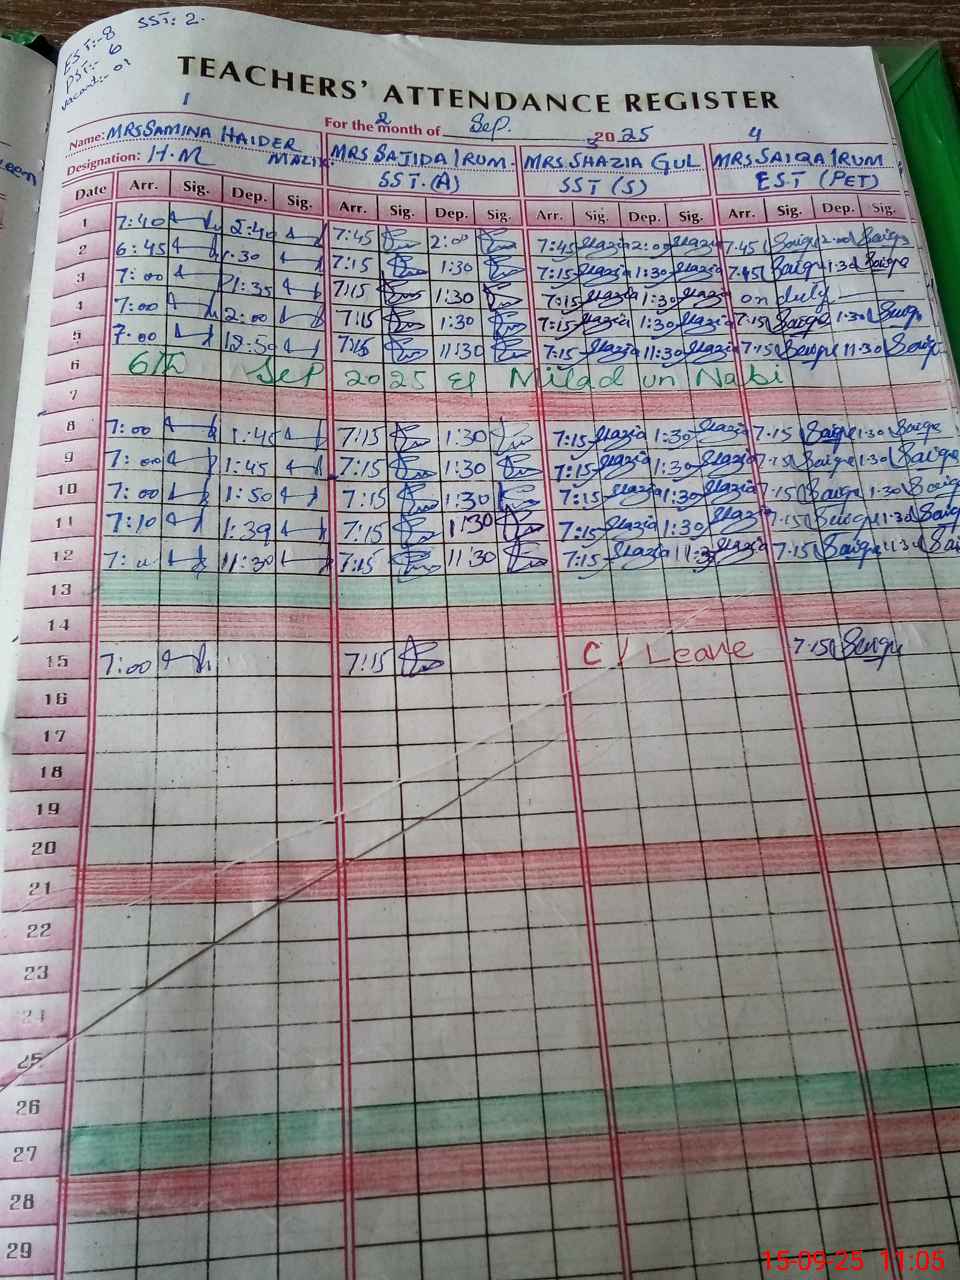 EST:-8 SST: 2.
PST:- 6
vacant:- 01
TEACHERS' ATTENDANCE REGISTER
1 2 3 4
For the month of Sep. 2025
Name: MRS SAMINA HAIDER MALIK MRS SAJIDA IRUM. MRS. SHAZIA GUL MRS. SAIQA IRUM
Designation: H.M SST.(A) SST (S) EST (PET)
Date Arr. Sig. Dep. Sig. Arr. Sig. Dep. Sig. Arr. Sig. Dep. Sig. Arr. Sig. Dep. Sig.
1 7:40 2:40 7:45 2:00 7:45 Shazia 2:00 Shazia 7:45 Saiqa 2:00 Saiqa
2 6:45 1:30 7:15 1:30 7:15 Shazia 1:30 Shazia 7:15 Saiqa 1:30 Saiqa
3 7:00 1:35 7:15 1:30 7:15 Shazia 1:30 Shazia on duty
4 7:00 2:00 7:15 1:30 7:15 Shazia 1:30 Shazia 7:15 Saiqa 1:30 Saiqa
5 7:00 7:15 11:30 7:15 Shazia 11:30 Shazia 7:15 Saiqa 11:30 Saiqa
6 6th Sep 2025 Milad un Nabi
7
8 7:00 1:45 7:15 1:30 7:15 Shazia 1:30 Shazia 7:15 Saiqa 1:30 Saiqa
9 7:00 1:45 7:15 1:30 7:15 Shazia 1:30 Shazia 7:15 Saiqa 1:30 Saiqa
10 7:00 1:50 7:15 1:30 7:15 Shazia 1:30 Shazia 7:15 Saiqa 1:30 Saiqa
11 7:10 1:39 7:15 1:30 7:15 Shazia 1:30 Shazia 7:15 Saiqa 1:30 Saiqa
12 11:30 7:15 11:30 7:15 Shazia 11:30 Shazia 7:15 Saiqa 11:30 Saiqa
13
14
15 7:00 7:15 C/Leave 7:15 Saiqa
16
17
18
19
20
21
22
23
24
25
26
27
28
29
15-09-25 11:05